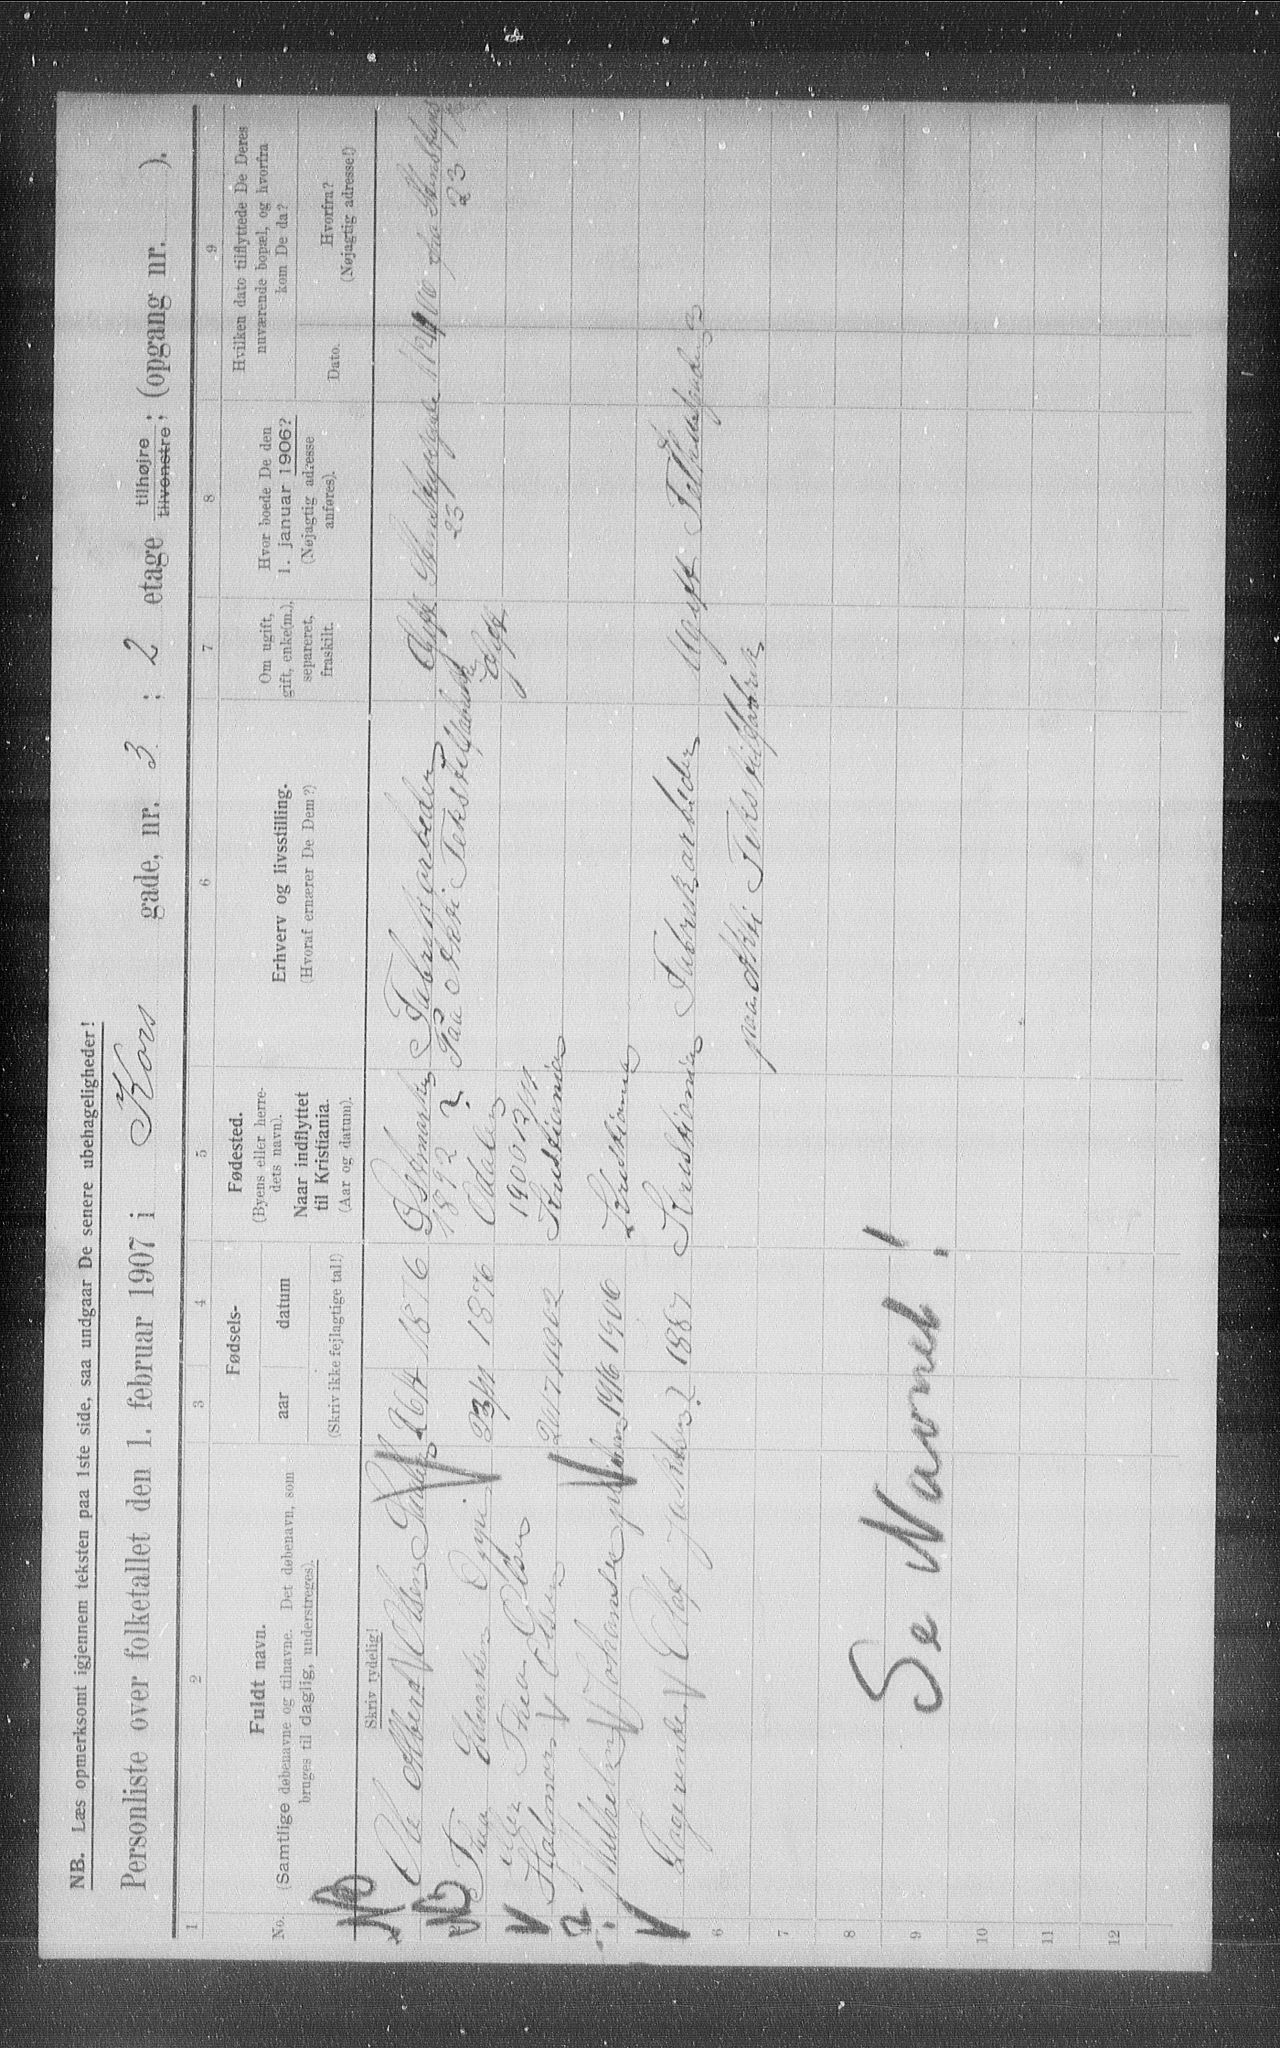 NB. Læs opmerksomt igjennem teksten paa 1ste side, saa undgaar De senere ubehageligheder!
Personliste over folketallet den 1. februar 1907 i Kors gade, nr. 3 ; 2 etage tilhøjre ; (opgang nr. ).
tilvenstre
1 2 3 4 5 6 7 8 9
No.
Fuldt navn.
(Samtlige døbenavne og tilnavne. Det døbenavn, som
bruges til daglig, understreges).
Fødsels-
aar datum
(Skriv ikke fejlagtige tal!)
Fødested.
(Byens eller herre-
dets navn).
Naar indflyttet
til Kristiania.
(Aar og datum).
Erhverv og livsstilling.
(Hvoraf ernærer De Dem?)
Om ugift,
gift, enke(m.),
separeret,
fraskilt.
Hvor boede De den
1. januar 1906?
(Nøjagtig adresse
anføres).
Hvilken dato tilflyttede De Deres
nuværende bopæl, og hvorfra
kom De da?
Dato.
Hvorfra?
(Nøjagtig adresse!)
Skriv tydelig!
NB Ole Albert Olsen 26/4 1876 Østmarken Fabrikarbeder Gift
1892 ? Paa Akti Tekstilfabrik 25 23
2 NB Thea 23/11 1876 Odalen Gift
eller Thea Olsen 1900 12/11
3 Halmar Olsen 26/7 1902 Kristiania
4 ? Wilhelm Johansen 19/6 1906 Kristiania
Logerende Olaf ? 1887 Kristiania Fabrikarbeder Ugift
paa Akti Tekstilfabrik
6
7
8
9
10
11
12
Se Navnet!